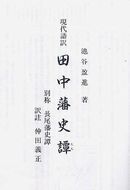 池谷盈進 著
現代語訳
田中藩史譚
別称 長尾藩史譚
訳註 仲田義正